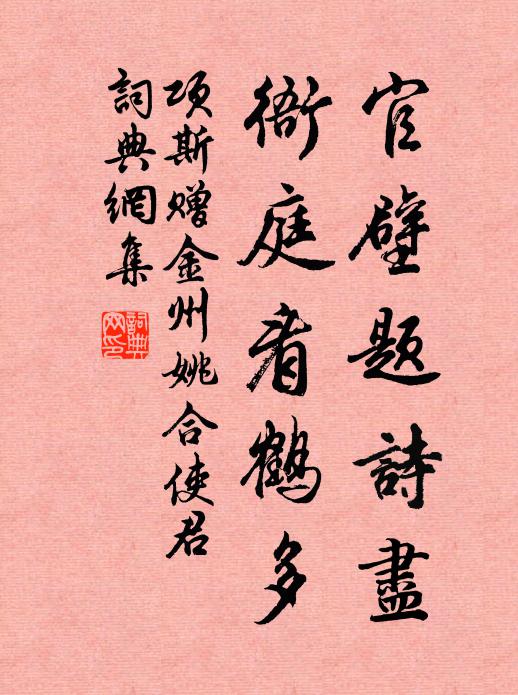 官壁題詩盡
衙庭看鶴多
项斯赠金州姚合使君
詞典網集
詞典網印